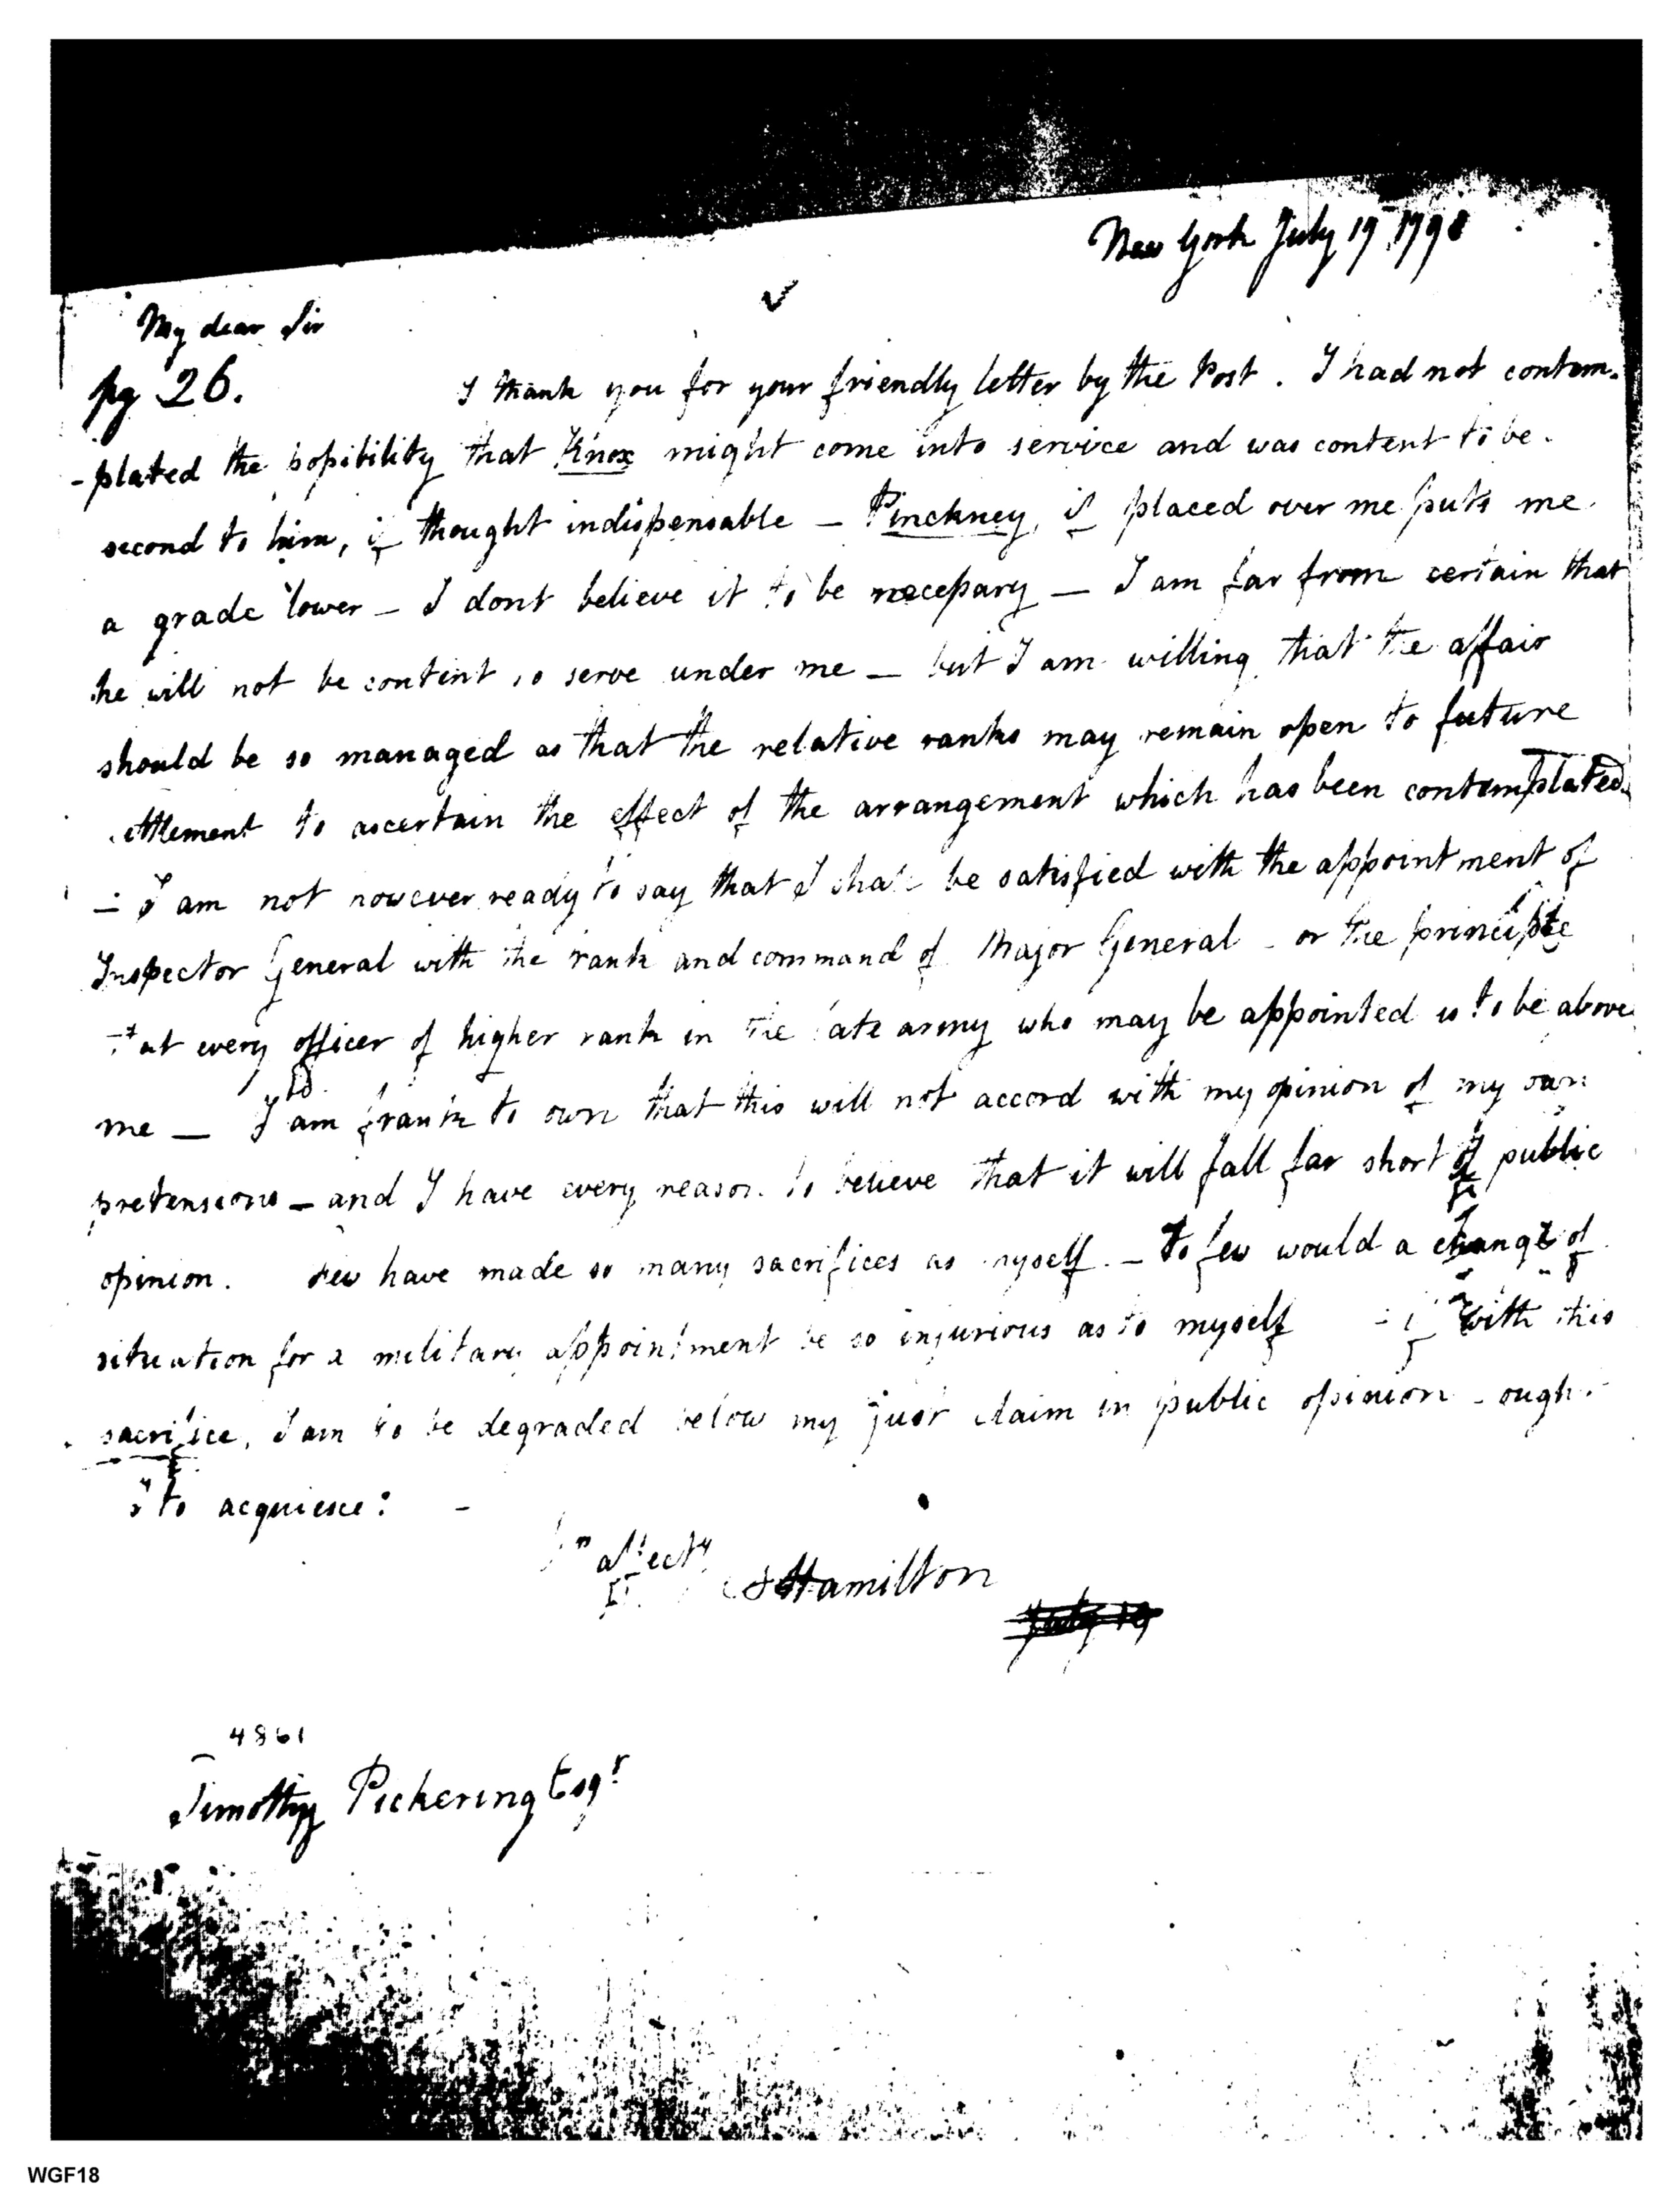 New York July 19 1798
My dear Sir
pg 26.
I thank you for your friendly letter by the Post. I had not contem-
-plated the possibility that Knox might come into service and was content to be
second to him, if thought indispensable — Pinckney, if placed over me puts me
a grade lower — I dont believe it to be necessary — I am far from certain that
he will not be content to serve under me — but I am willing that the affair
should be so managed as that the relative ranks may remain open to future
settlement to ascertain the effect of the arrangement which has been contemplated
— I am not however ready to say that I shall be satisfied with the appointment of
Inspector General with the rank and command of Major General - or the principle
that every officer of higher rank in the late army who may be appointed is to be above
me — I am frank to own that this will not accord with my opinion of my own
pretensions — and I have every reason to believe that it will fall far short of public
opinion. Few have made so many sacrifices as myself. — To few would a change of
situation for a military appointment be so injurious as to myself - if with this
sacrifice, I am to be degraded below my just claim in public opinion - ought
I to acquiesce?
affecty
A Hamilton
July 19
4861
Timothy Pickering Esqr
WGF18